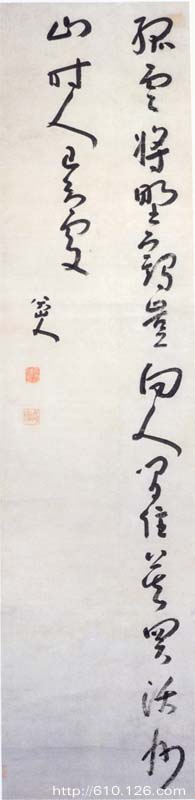 孤雲將野鶴豈向人間住莫買沃洲
山時人已知處
八大山人
http://610.126.com